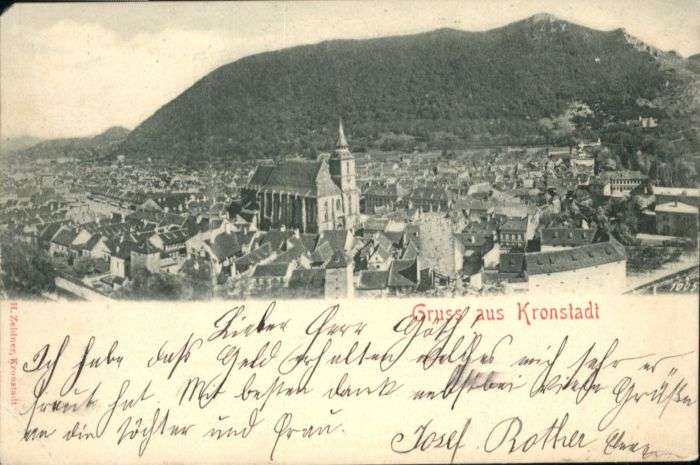 Gruss aus Kronstadt
H. Zeidner, Kronstadt
Lieber Herr Göth!
Ich habe daß Geld erhalten welches mich sehr er
freut hat. Mit besten dank nebst bei viele Grüße
an die töchter und frau.
Josef Rother